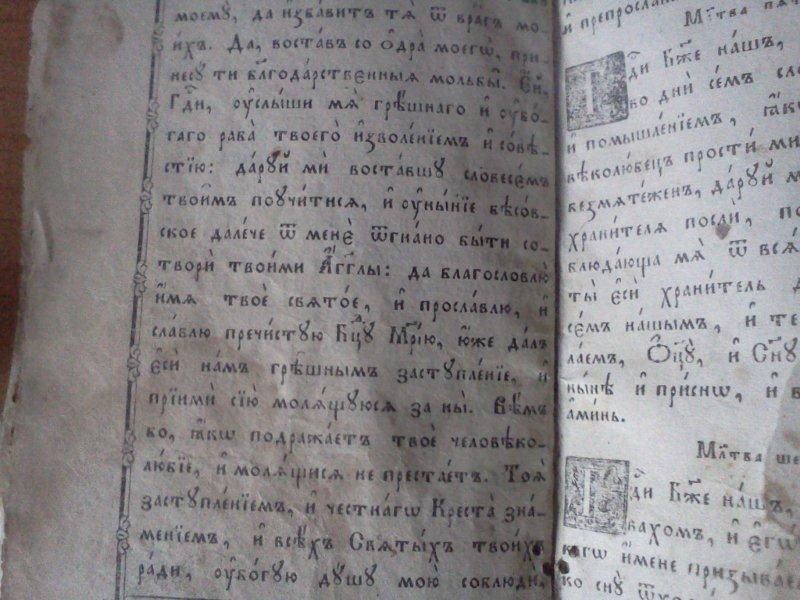 моемꙋ̀, да и҆збавитъ тѧ̀ ѿ вра̑гъ мо-
и́хъ. Да, воста́въ со ѻ҆дра̀ моегѡ̀, при-
несꙋ́ ти бл҃года́рственныѧ мольбы̀. Є҆́й,
Гд҇и, ᲂу҆слы́ши мѧ̀ грѣ́шнаго и҆ ᲂу҆бо́-
гаго раба̀ твоегѡ̀ и҆зволе́нїемъ и҆ со́вѣ-
стїю: да́рꙋй мѝ воста́вшꙋ словесе́мъ
твои̑мъ поꙋчи́тисѧ, и҆ ᲂу҆ны́нїе бѣсо́в-
ское дале́че ѿ менє̀ ѿгна́но бы́ти со-
творѝ твои́ми А҆́гг҃лы: да благословлю̀
и҆́мѧ твоѐ свѧто́е, и҆ просла́влю, и҆
сла́влю пречи́стꙋю Бц҃ꙋ Мр҃і́ю, ю҆́же да́лъ
є҆сѝ на́мъ грѣ́шнымъ застꙋпле́нїе, и҆
прїимѝ сїю̀ молѧ́щꙋюсѧ за ны̀. Вѣ́мъ
бо, ꙗ҆́кѡ подража́етъ твоѐ человѣко-
лю́бїе, и҆ молѧ́щисѧ не преста́етъ. Тоѧ̀
застꙋпле́нїемъ, и҆ честна́гѡ Креста̀ зна́-
менїемъ, и҆ всѣ́хъ Свѧты́хъ твои́хъ
ра́ди, ᲂу҆бо́гꙋю дꙋ́шꙋ мою̀ соблюдѝ,
и҆ препросла
Мл҃тва пѧ
Гд҇и Бж҃е на́шъ,
во днѝ се́мъ сло
и҆ помышле́нїемъ, ꙗ҆́кѡ
вѣколю́бецъ простѝ ми
безмѧте́женъ, да́рꙋй м
храни́телѧ послѝ, по
блюда́юща мѧ̀ ѿ всѧ
ты̀ є҆сѝ храни́тель д
се́мъ на́шымъ, и҆ те
ла́емъ, Ѻ҆ц҃ꙋ̀, и҆ Сн҃ꙋ
ны́нѣ и҆ при́снѡ, и҆ в
а҆ми́нь.
Мл҃тва ше
Гд҇и Бж҃е на́шъ,
вахомъ, и҆ є҆гѡ́
когѡ и҆́мене призыва́е
ко снꙋ̀